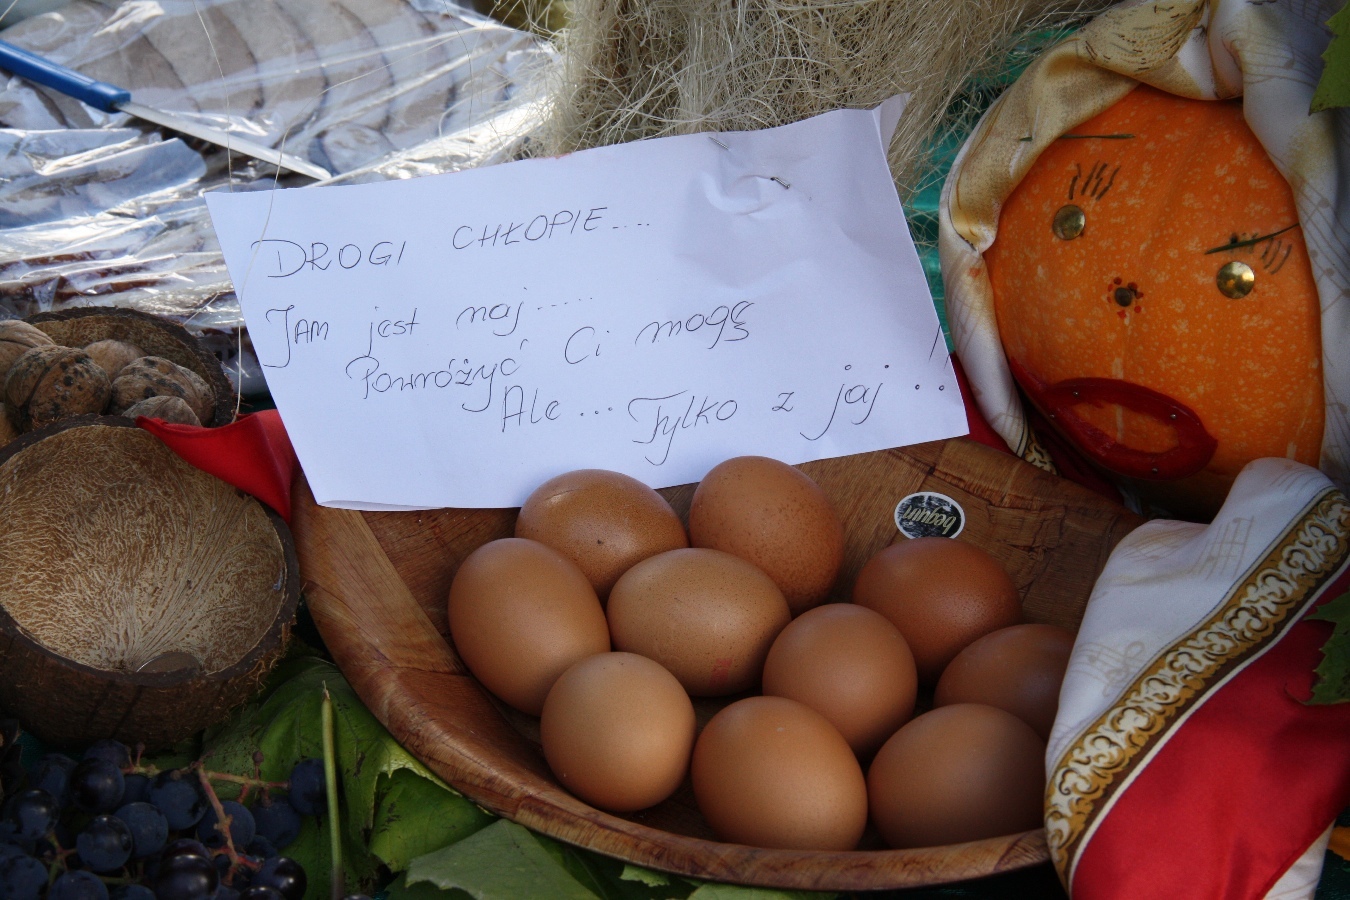 DROGI CHŁOPIE....
JAM jest naj.....
Powróżyć Ci mogę
Ale... Tylko z jaj..!
beguin